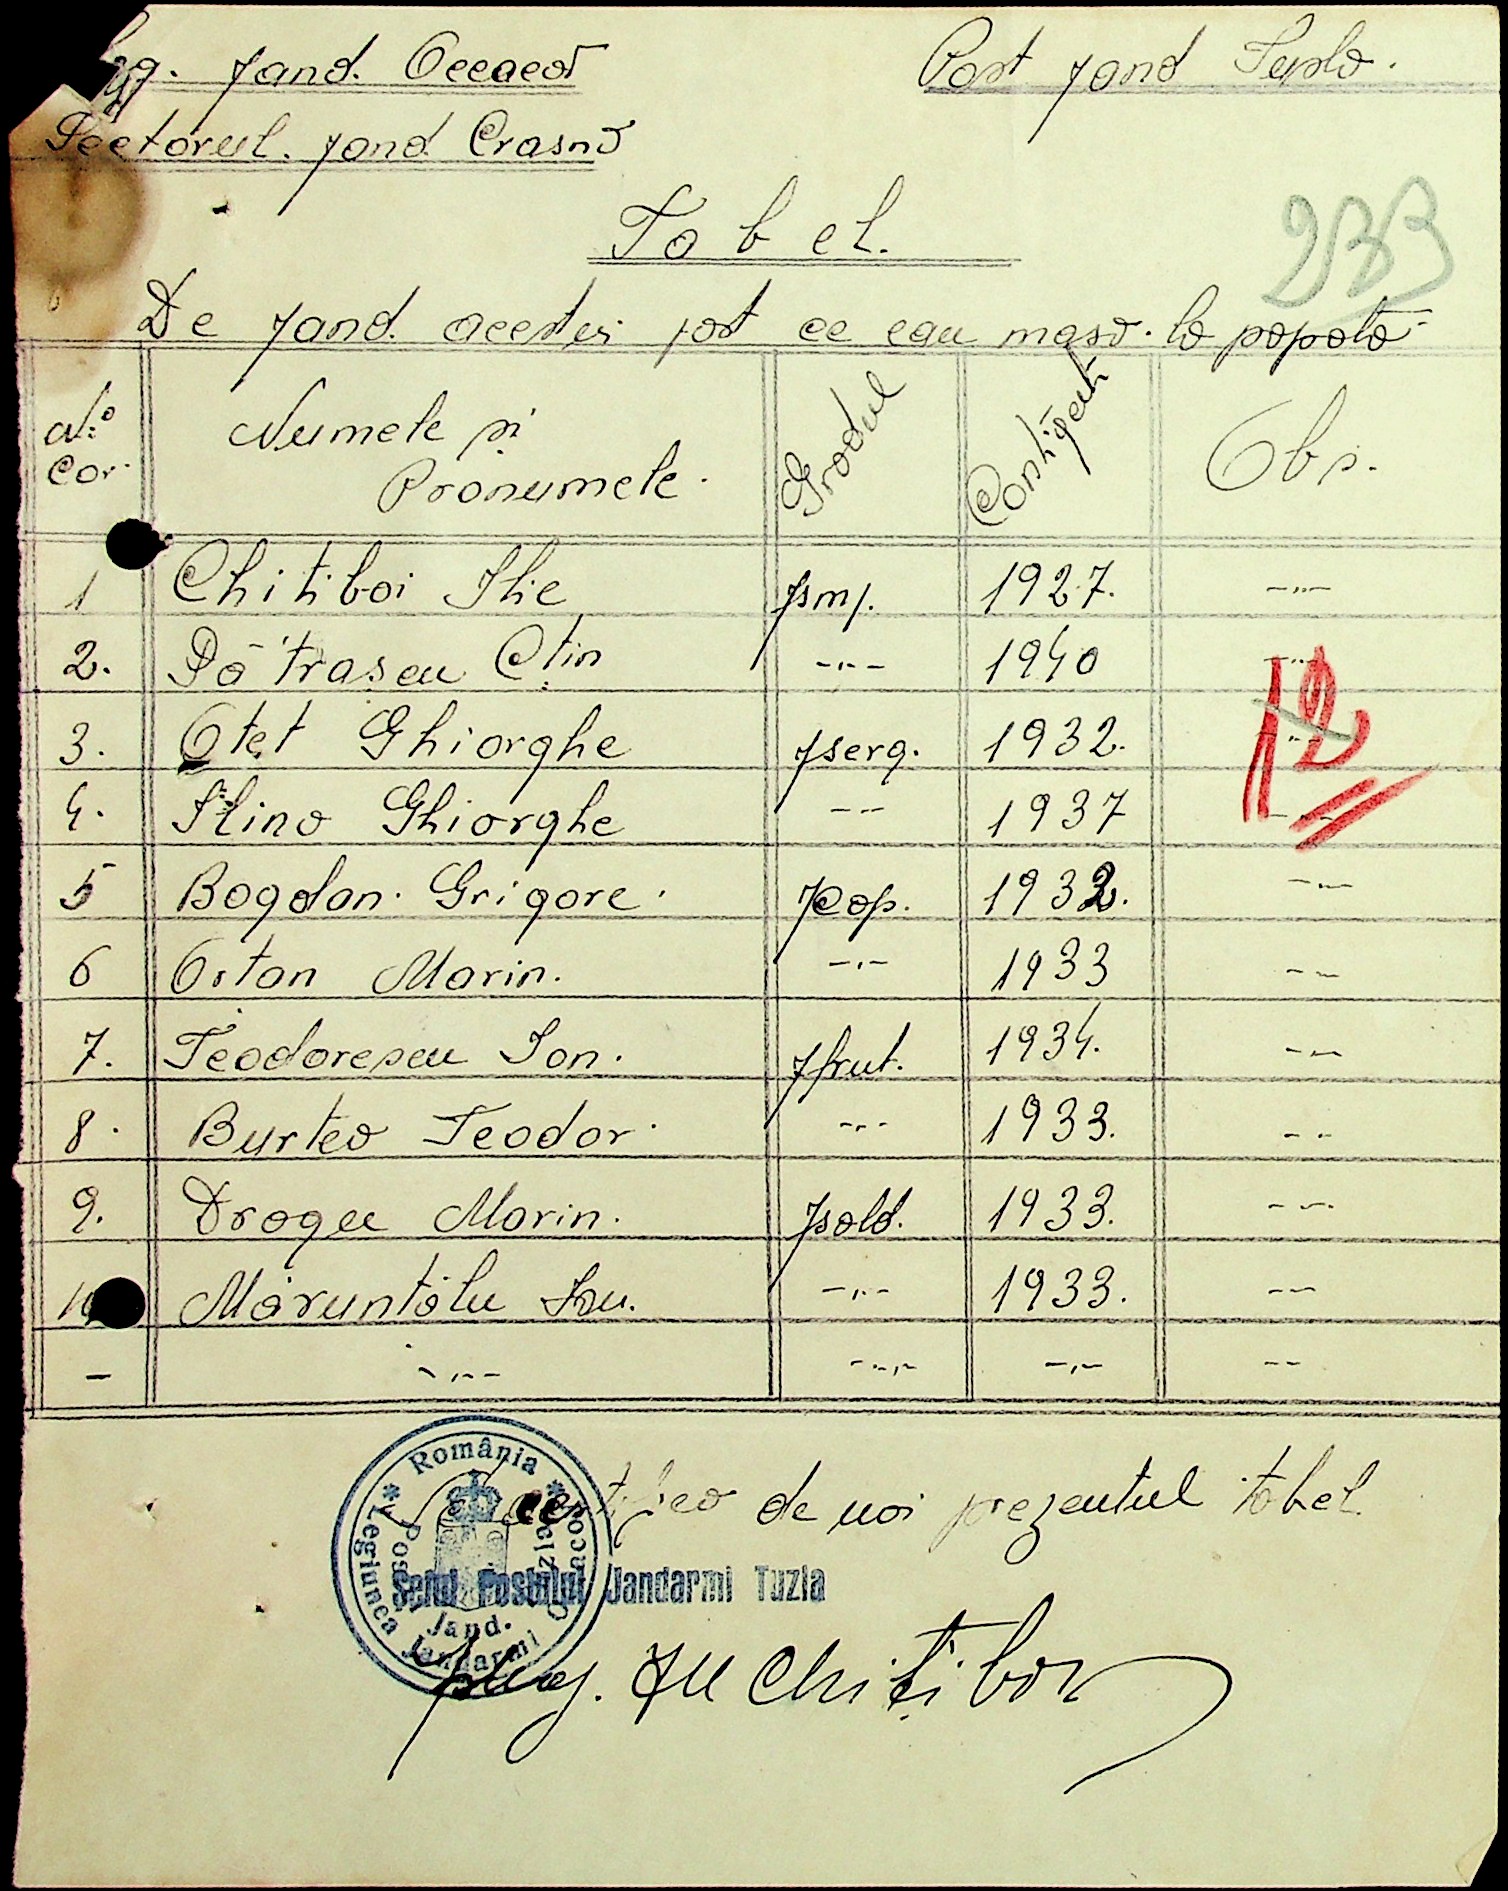 Leg. Jand. Oceacov
Post Jand Tuzla.
Sectorul. Jand. Crasna
233
Tabel.
De jand. acestui post ce eau masa. la popotă
No. Cor. Numele și Pronumele. Gradul Contigent Obs.
1 Chitiboi Ilie jsmj. 1927. -"-
2. Pătrașcu Ctin -"- 1940 -"-
3. Oteț Ghiorghe jserg. 1932. -"-
4. Ilina Ghiorghe -"- 1937 -"-
5 Bogdan. Grigore. jcap. 1932. -"-
6 Ortan Marin. -"- 1933 -"-
7. Teodorescu Ion. jfrut. 1934. -"-
8. Burtea Teodor. -"- 1933. -"-
9. Drogu Marin. jsold. 1933. -"-
10 Măruntălu Ion. -"- 1933. -"-
- -"- -"- -"- -"-
12
Se certifica de noi prezentul tabel.
România
Legiunea Jandarmi Oceacov
Post Jand.
Șeful Postului Jandarmi Tuzla
Chitiboi